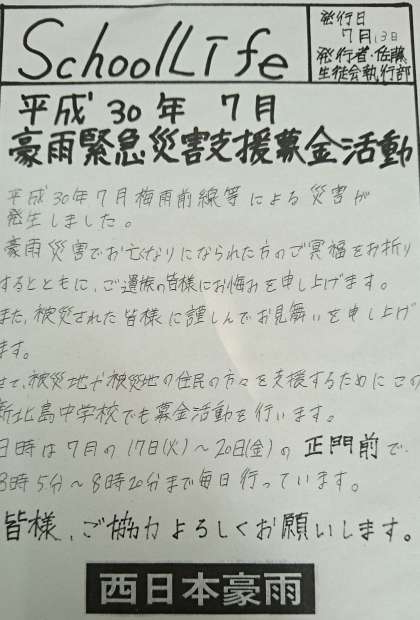 School Life
発行日
7月13日
発行者・佐藤
生徒会執行部
平成30年 7月
豪雨緊急災害支援募金活動
平成30年7月梅雨前線等による災害が
発生しました。
豪雨災害でお亡くなりになられた方のご冥福をお祈り
するとともに、ご遺族の皆様にお悔みを申し上げます。
また、被災された皆様に謹んでお見舞いを申し上げ
ます。
さて、被災地や被災地の住民の方々を支援するためにこの
新北島中学校でも募金活動を行います。
日時は7月の17日(火)～20日(金)の正門前で、
8時5分～8時20分まで毎日行っています。
皆様、ご協力よろしくお願いします。
西日本豪雨